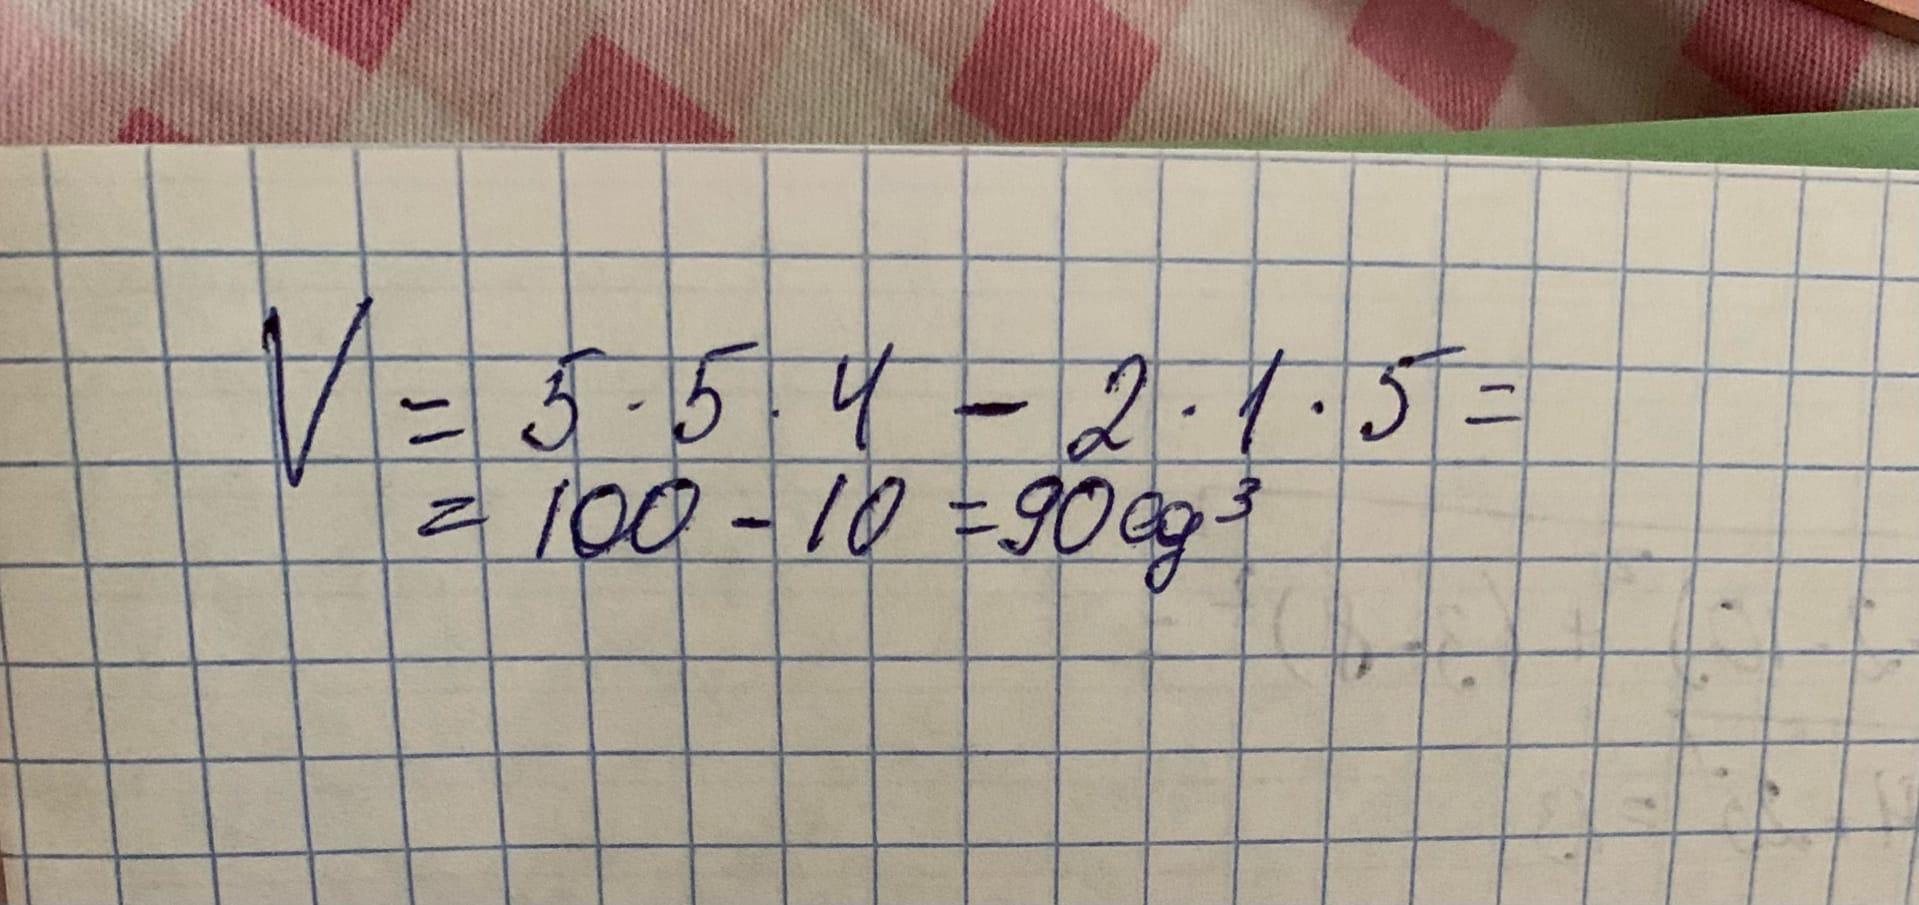 V = 5 · 5 · 4 - 2 · 1 · 5 =
= 100 - 10 = 90 eg³